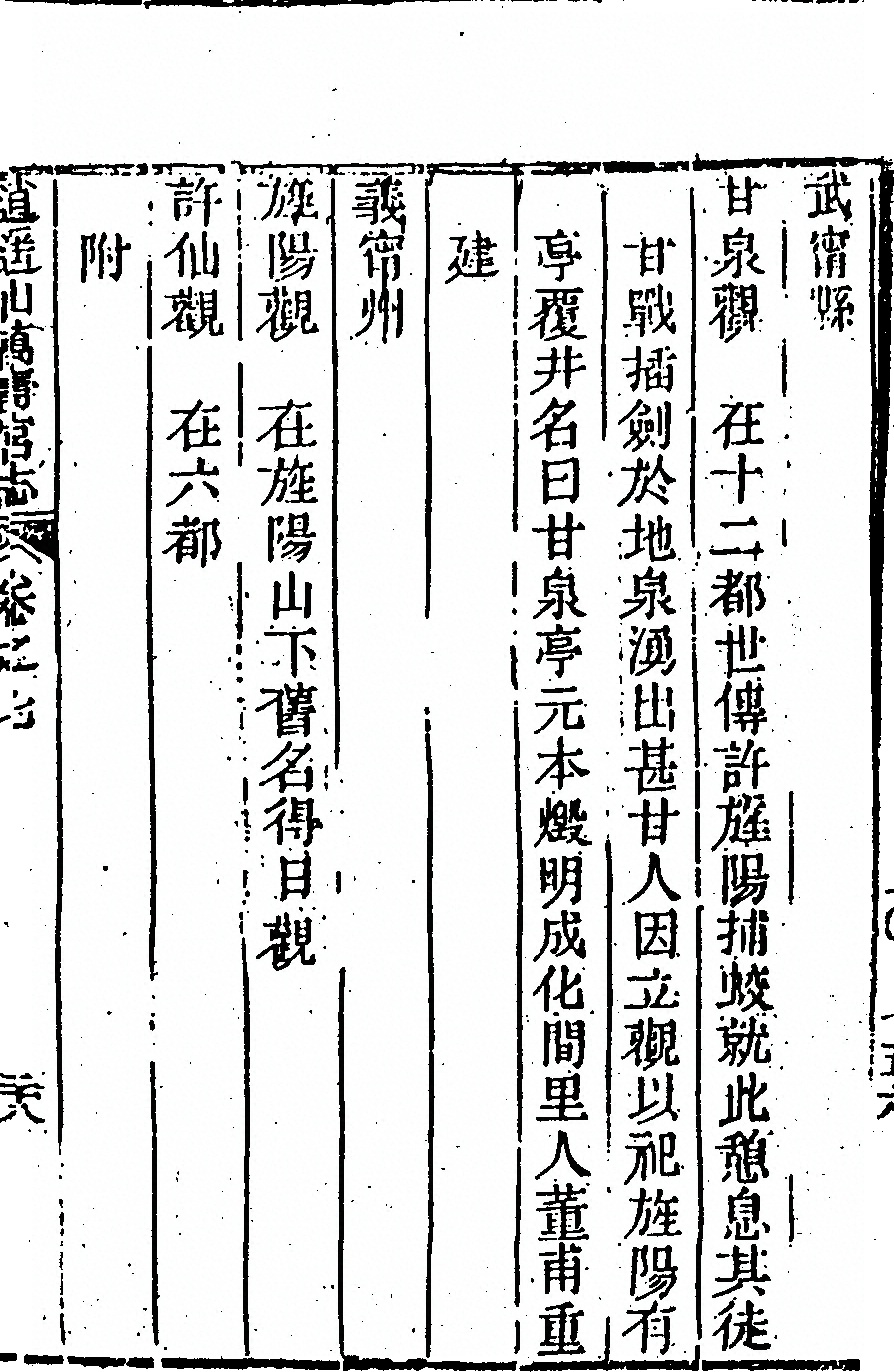 武甯縣
甘泉觀　在十二都世傳許旌陽捕蛟就此憩息其徒
甘戰插劍於地泉湧出甚甘人因立觀以祀旌陽有
亭覆井名曰甘泉亭元本燬明成化間里人董甫重
建
義甯州
旌陽觀　在旌陽山下舊名得日觀
許仙觀　在六都
附
逍遥山萬壽宮志　卷之七